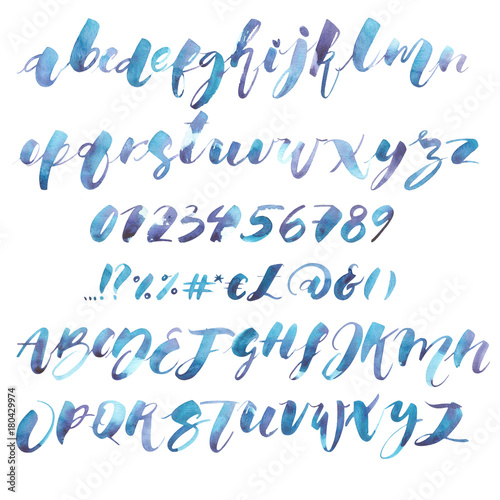 abcdefghijklmn
opqrstuvwxyzz
0123456789
...!?%%#*€£@&()
ABCDEFGHIJKLMN
OPQRSTUVWXYZ
180429974
Adobe Stock